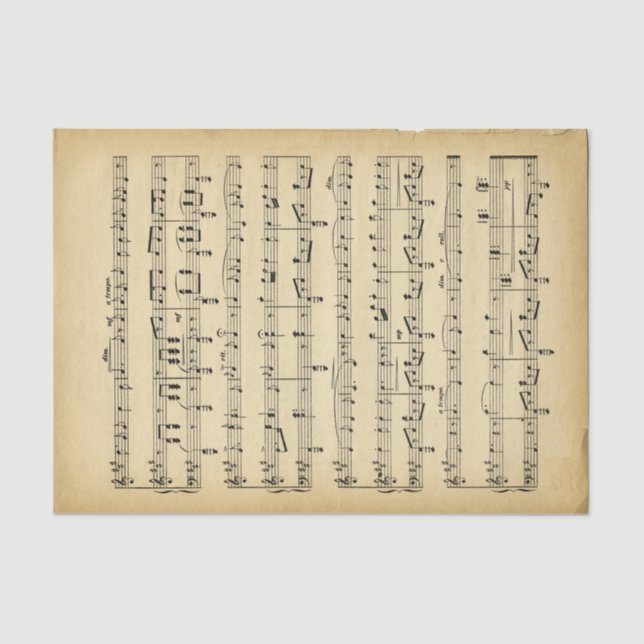 dim. mf a tempo.
mf
rit.
dim.
mp
a tempo. dim. e rall.
pp